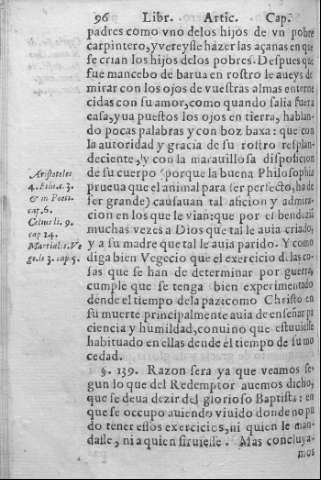 96 Libr. Artic. Cap.
padres como vno delos hijos de vn pobre
carpintero, y vereysle hazer las açanas en que
se crian los hijos delos pobres. Despues que
fue mancebo de barua en rostro le aueys de
mirar con los ojos de vuestras almas enterne
cidas con su amor, como quando salia fuera
casa, yua puestos los ojos en tierra, hablan-
do pocas palabras y con boz baxa: que con
la autoridad y gracia de su rostro resplan-
deciente, y con la marauillosa disposicion
de su cuerpo (porque la buena Philosophia
prueua que el animal para ser perfecto, ha de
ser grande) causauan tal aficion y admira-
cion en los que le vian: que por el bendezian
muchas vezes a Dios que tal le auia criado,
y a su madre que tal le auia parido. Y como
diga bien Vegecio que el exercicio d. las co-
sas que se han de determinar por guerra,
cumple que se tenga bien experimentado
dende el tiempo dela paz: como Christo en
su muerte principalmente auia de enseñar pa
ciencia y humildad, conuino que estuuiesse
habituado en ellas dende el tiempo de su mo
cedad.
§. 139. Razon sera ya que veamos se-
gun lo que del Redemptor auemos dicho,
que se deua dezir del glorioso Baptista: en
que se occupo auiendo viuido donde no pu
do tener essos exercicios, ni quien le man-
dasse, ni a quien siruiesse. Mas concluya-
mos
Aristoteles
4. Ethic. c. 3.
& in Poeti.
cap. 6.
cap 24.
Martial. 1. Ve
ge. li 3. cap. 5.